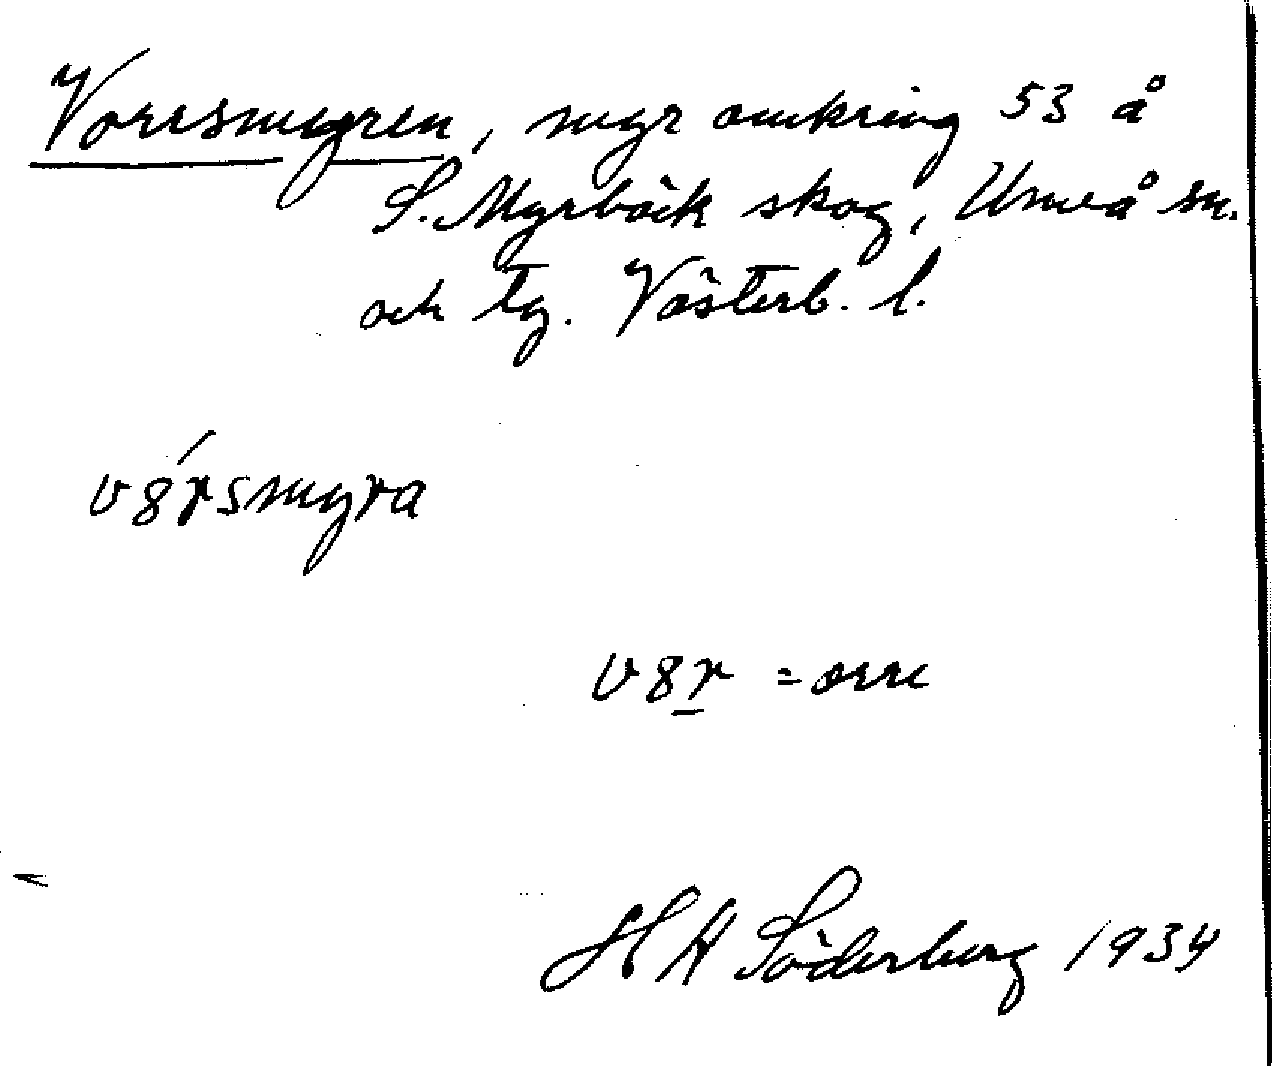 Vorrsmyren, myr omkring 53 å
S. Myrbäck skog, Umeå sn.
och tg. Västerb. l.
v8́rsmyra
v8r = orre
H A Söderberg 1934